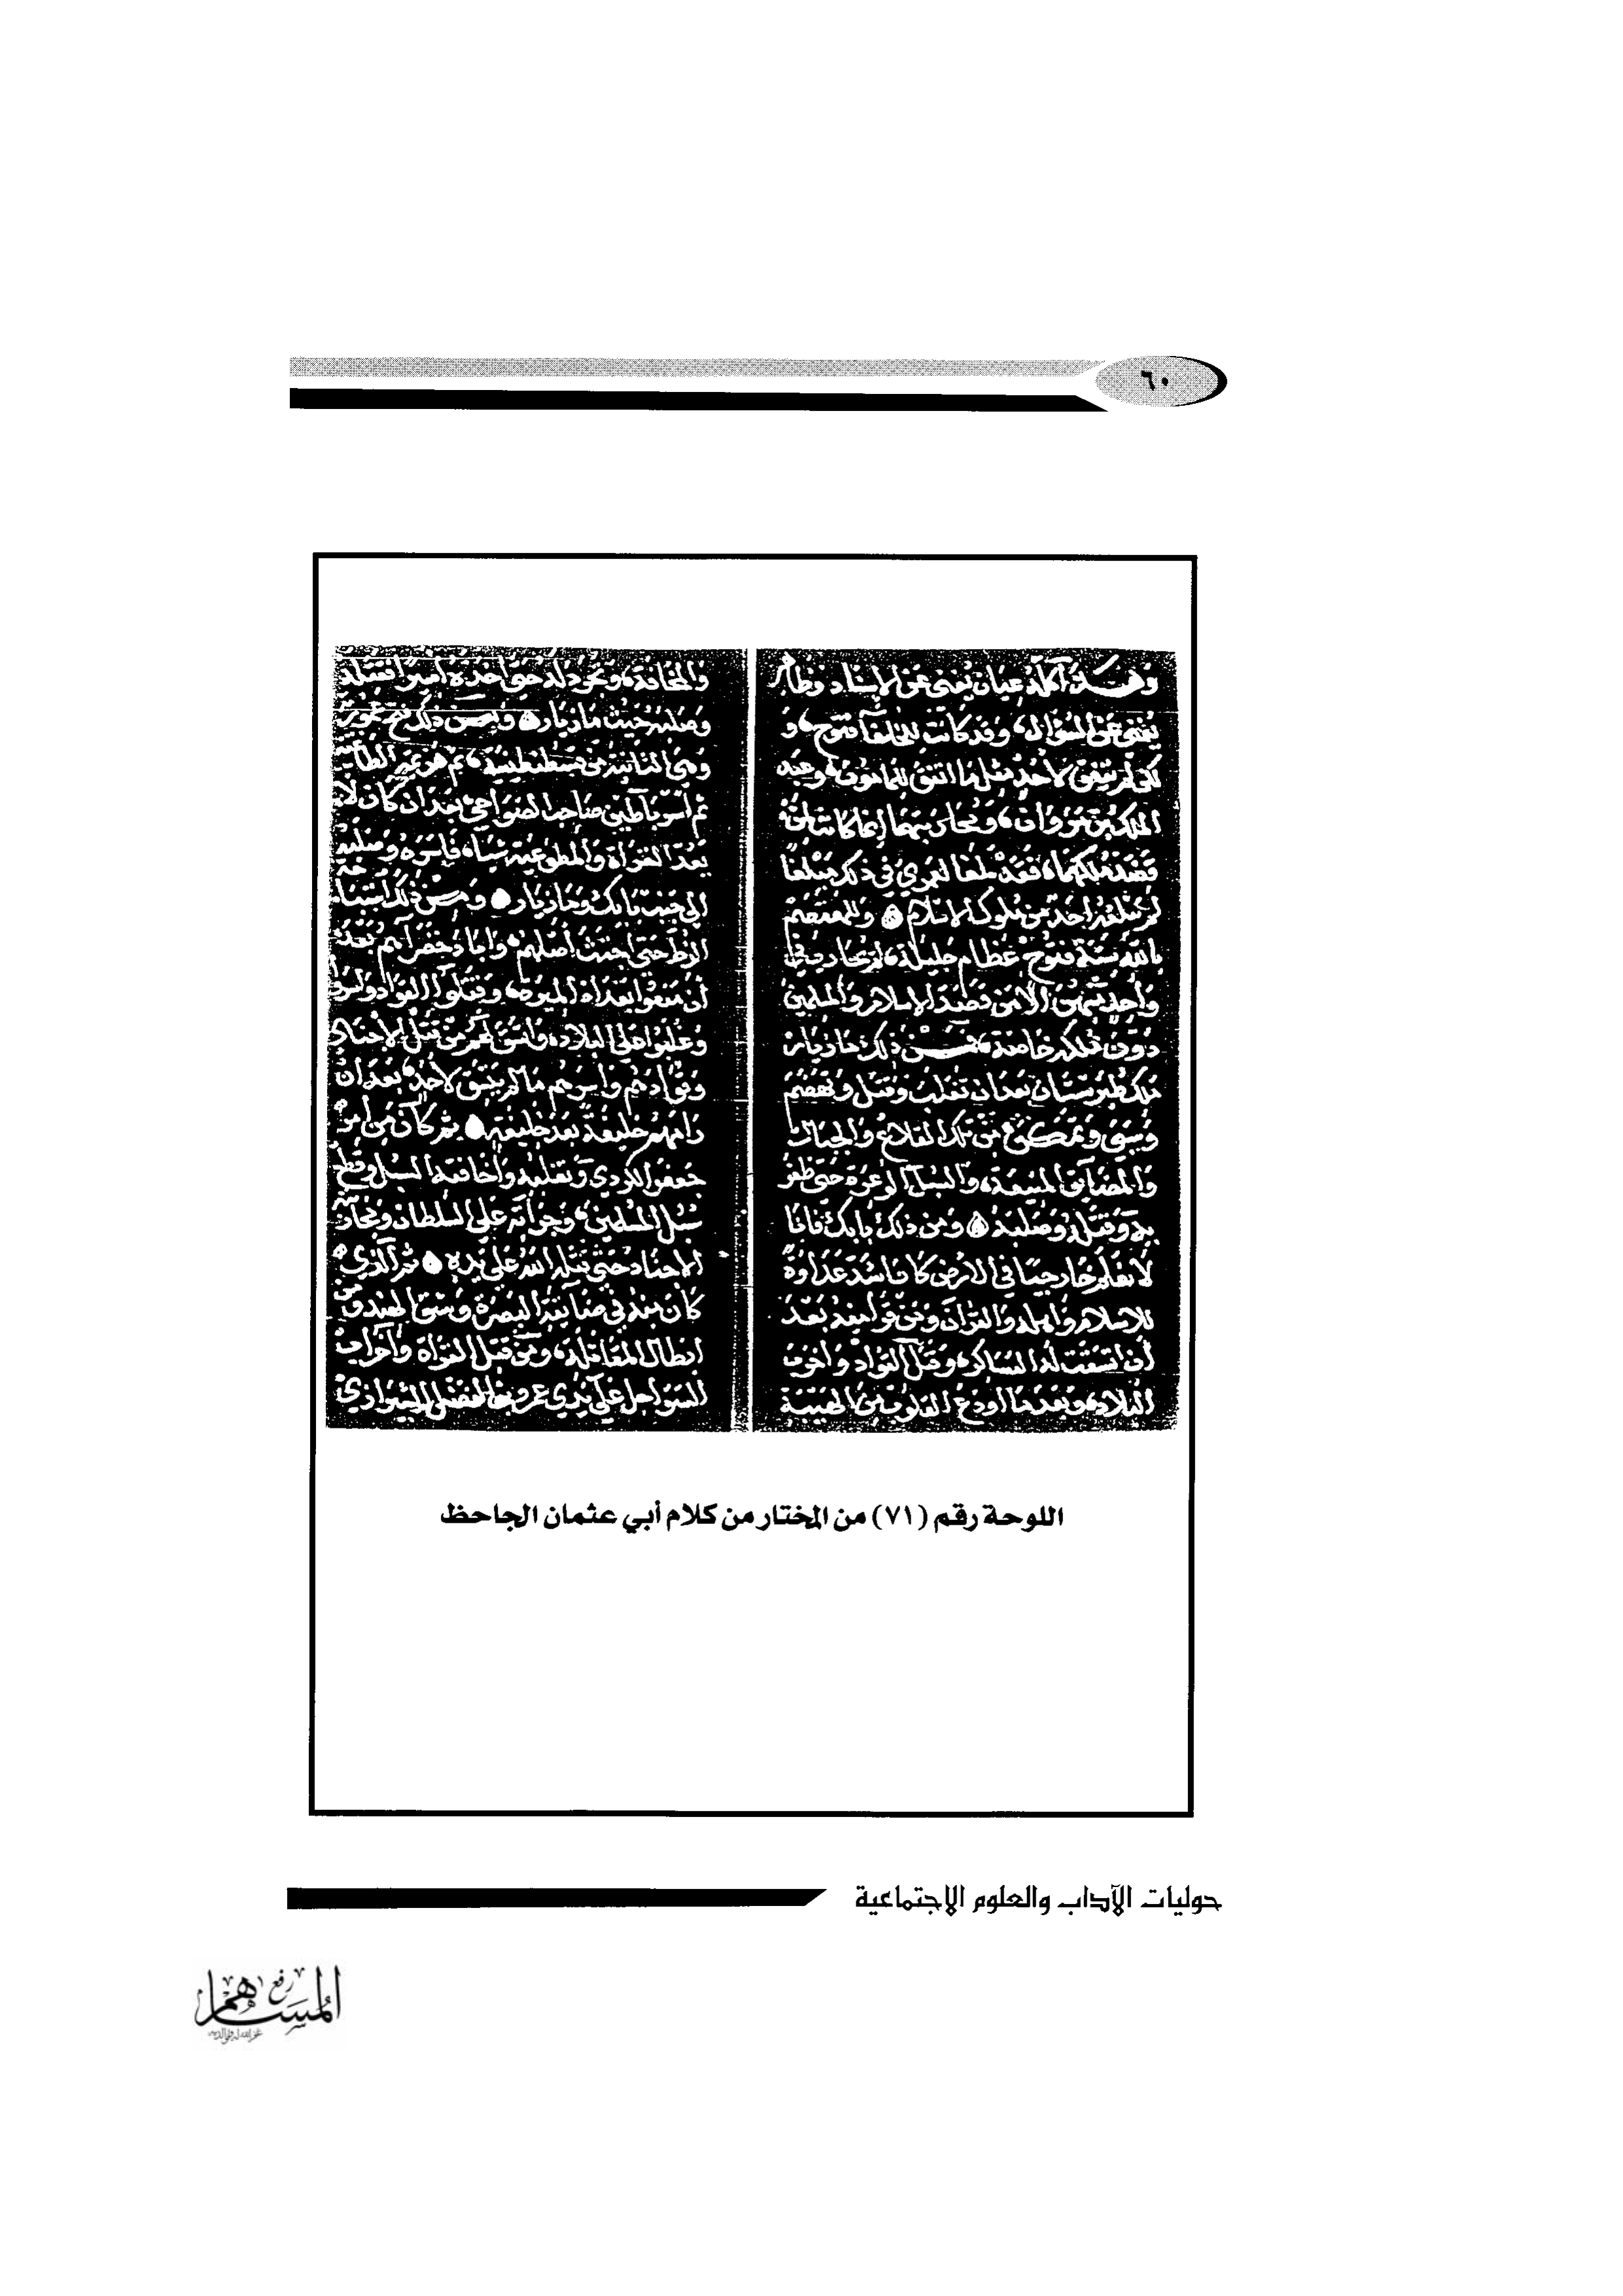 ٦٠
وهذا كله عيان يغني عن الإسناد وظاهر
يغني عن السؤال، وقد كانت للخلفاء فتوح، و
لكن لم يتفق لأحد مثل ما اتفق للمأمون، وعبد
الملك بن مروان،
فقد بلغا لعمري في ذلك مبلغا
لم يبلغه أحد من ملوك الإسلام وللمعتصم
بالله ستة فتوح عظام جليلة، لم يحارب في
واحد منهن إلا من قصد الإسلام والمسلمين
دون ملكه خاصة، فمن ذلك مازيار
ملك طبرستان بعد أن تغلب وقتل
وسبى و من تلك القلاع والجبال
والمضايق المنيعة، والسبل الوعرة حتى ظفر
به وقتله وصلبه ومن ذلك بابك فانا
لا نعلم خارجيا في الأرض كان أشد عداوة
للإسلام وأهله والقرآن ومن
أن اتسقت له العساكر، وقتل القواد وأخرب
البلاد، وبعد ما أودع القلوب من الهيبة
والمخافة، حتى أخذه أسيرا فقتله
وصلبه حيث مازيار ومن ذلك فتح عمورية
وهي الثانية من قسطنطينية، ثم
ثم أسر باطس صاحب الضواحي، بعد أن كان لا
يعد الغزاة والمطوعة شيئا، فأسره وصلبه
إلى جنب بابك ومازيار ومن ذلك
الزط حتى اجتث أصلهم، وأباد خضراءهم بعد
أن منعوا بغداد الميرة، وقتلوا القواد
وغلبوا على البلاد، من قتل الأجناد
وقوادهم وأسرهم ما لم يتفق لأحد، بعد أن
رامهم خليفة بعد خليفة ثم كان من أمر
جعفر الكردي وتغلبه وإخافته السبل وقطع
سبل المسلمين، وجرأته على السلطان
الأجناد حتى قتله الله على يديه ثم الذي
كان بعد في البصرة الهند من
أبطال المقاتلة، ومن قتل الغزاة
السواحل على يدي عمرو بن الفضل الشيرازي
اللوحة رقم (٧١) من المختار من كلام أبي عثمان الجاحظ
حوليات الآداب والعلوم الإجتماعية
رفع
المساهم
غفر الله له ولوالديه